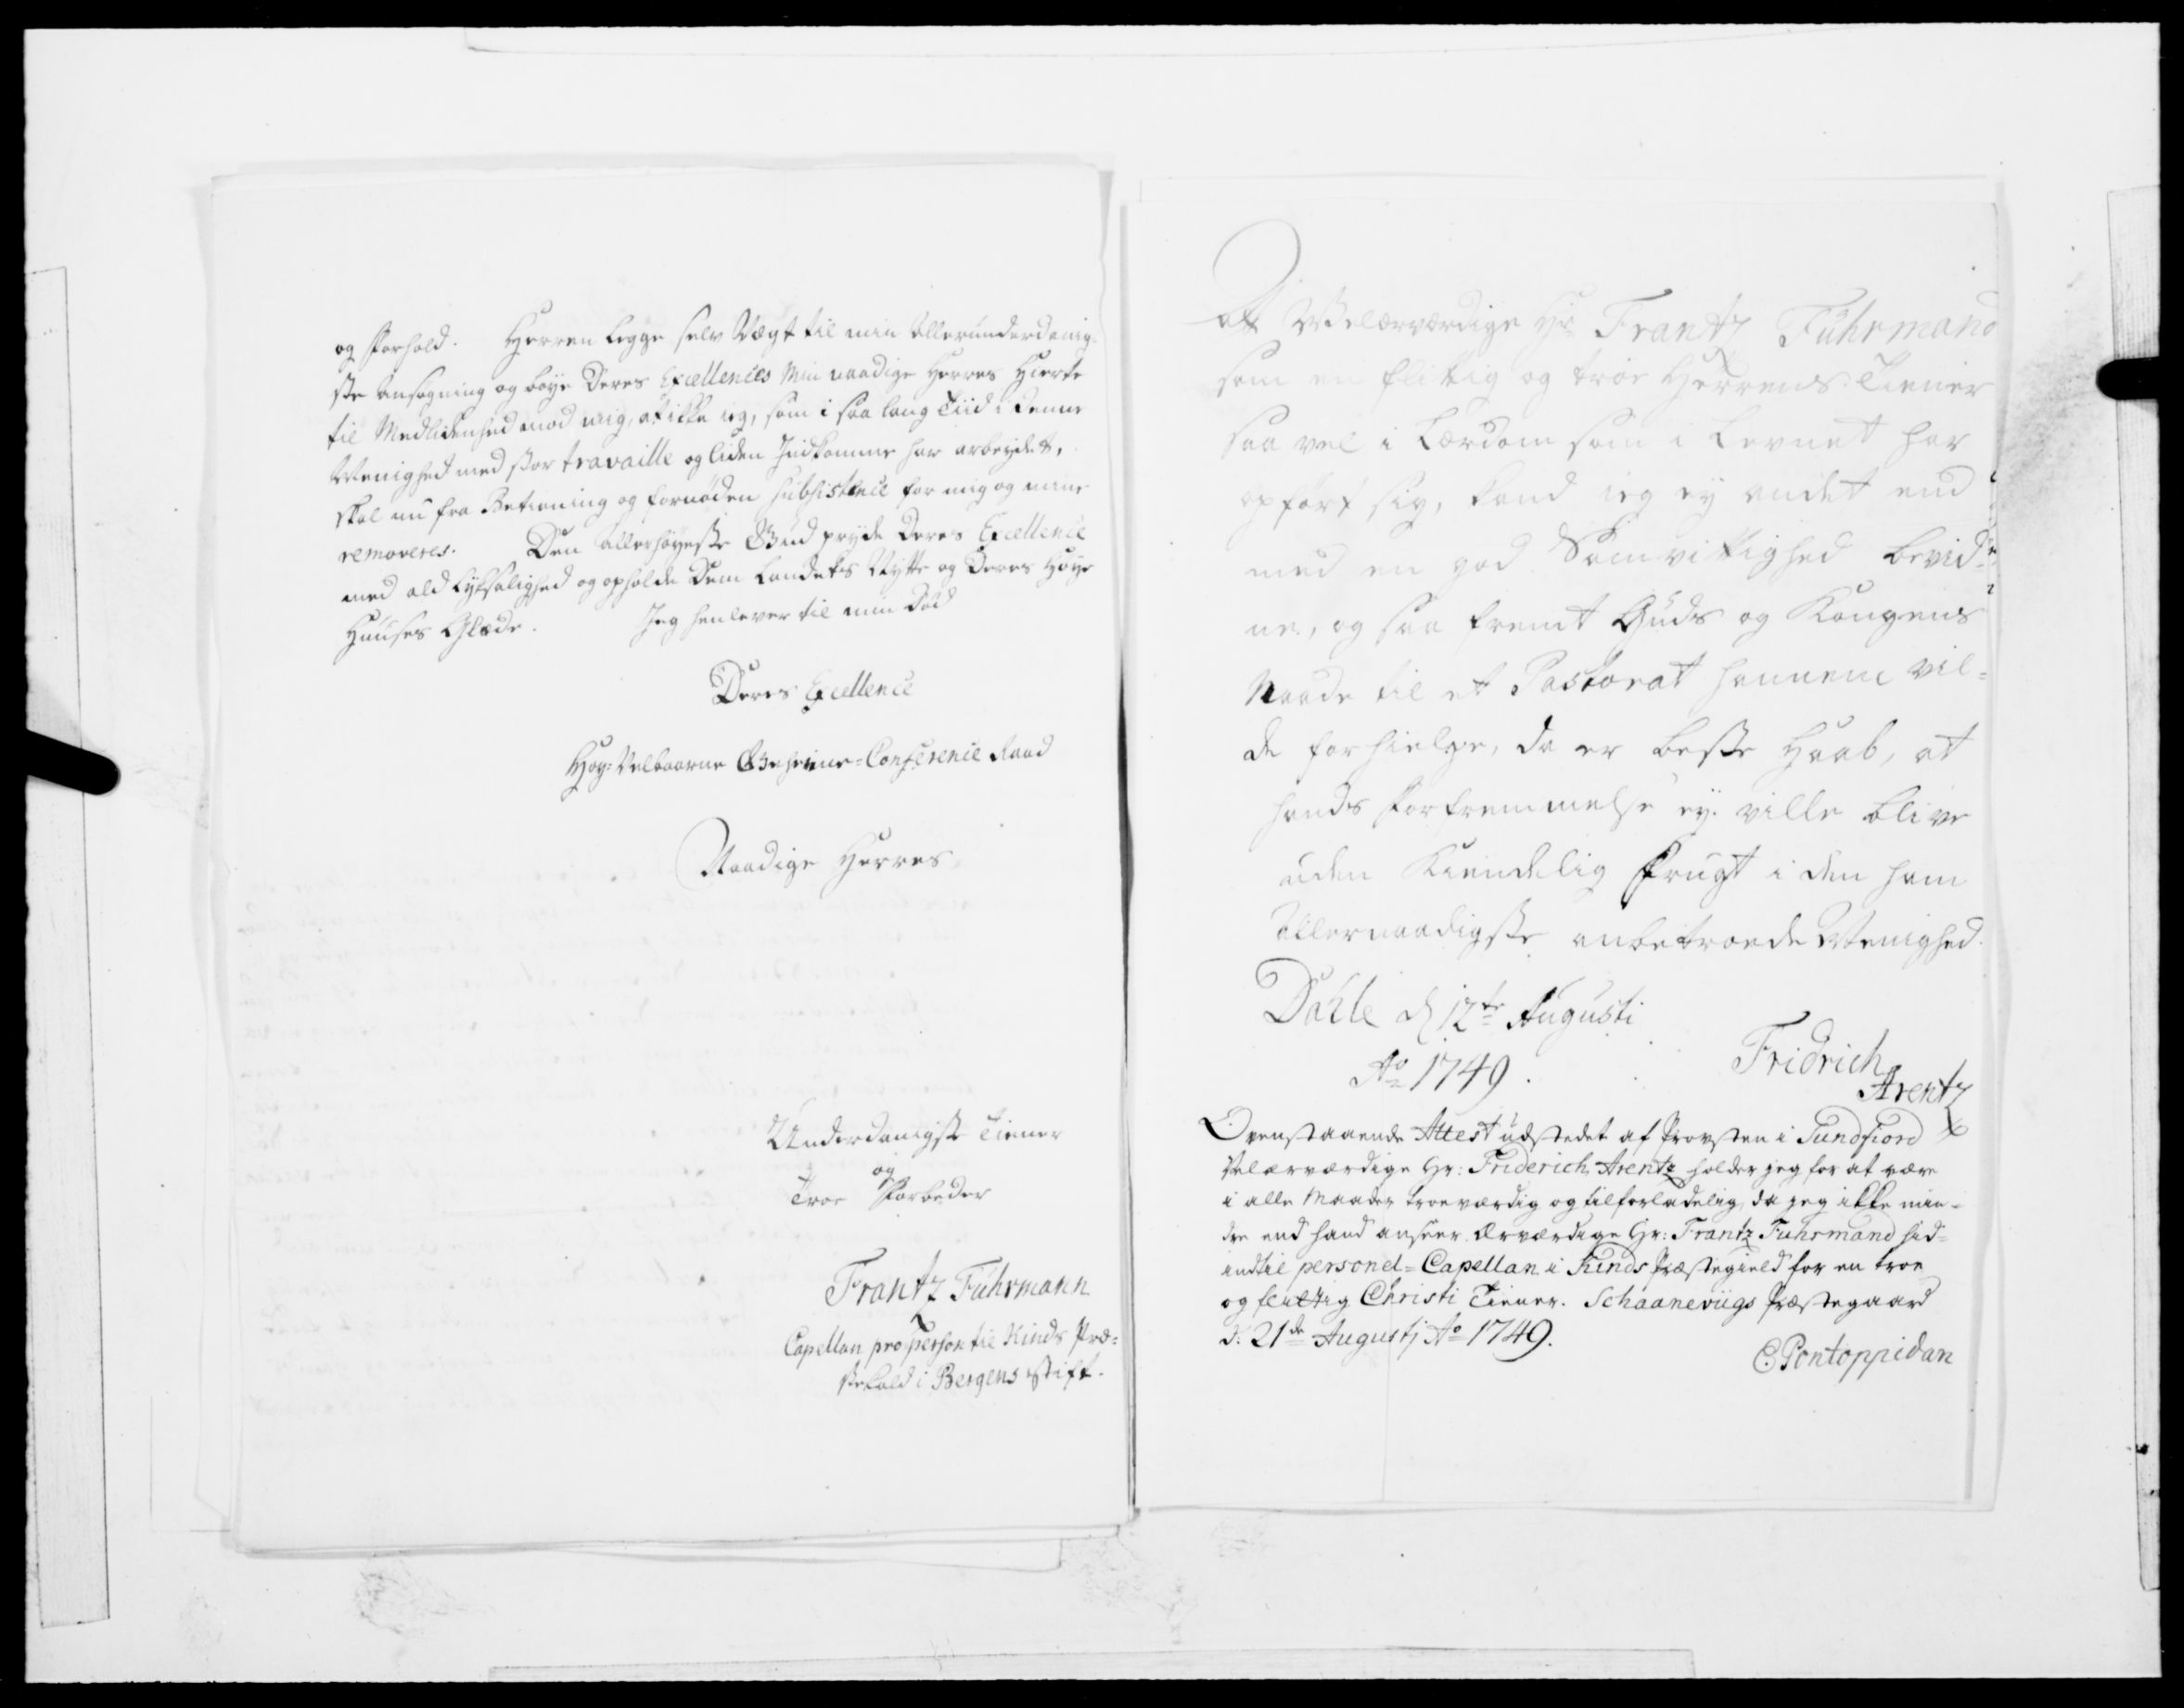 og Forhold. Herren legge selv Vægt til min Allerunderdanig-
ste Ansøgning og bøye Deres Excellences Min naadige Herres Hierte
til Medlidenhed mod mig, at ikke ieg, som i saa lang Tiid i denne
Menighed med stor travaille og liden Indkomme har arbeydet,
skal nu fra Betiening og fornøden subsistence for mig og mine
removeres. Den Allerhøyeste Gud pryde Deres Excellence
med ald Lyksalighed og opholde Dem Landets Nytte og Deres Høye
Huuses Glæde. Jeg henlever til min Død
Deres Excellence
Høy-Velbaarne Geheime-Conference Raad
Naadige Herres
Underdanigste Tiener
og
Troe Forbeder
Frantz Fuhrmann
Capellan pro persona til Kinds Præ-
stekald i Bergens Stift.
At Velærværdige Hr. Frantz Fuhrmand
som en flitig og troe Herrens Tiener
saa vel i Lærdom som i Levnet har
opført sig, kand ieg ey andet end
med en god Samvittighed bevid-
ne, og saa fremt Guds og Kongens
Naade til et Pastorat hannem vil-
de forhielpe, da er beste Haab, at
hands Forfremmelse ey ville blive
uden kiendelig Frugt i den ham
Allernaadigste anbetroede Menighed.
Dahle d 12te Augusti
Ao 1749.
Fridrich
Arentz
Ovenstaaende Attest udstedet af Provsten i Sundfiord
Velærværdige Hr: Friderich Arentz holder jeg for at være
i alle Maader troeværdig og tilforladelig, da jeg ikke min-
dre end hand anseer Ærværdige Hr: Frantz Fuhrmand hid-
indtil personel-Capellan i Kinds Præstegield for en troe
og flittig Christi Tiener. Schaaneviigs Præstegaard
d. 21de Augustj Ao 1749.
E Pontoppidan